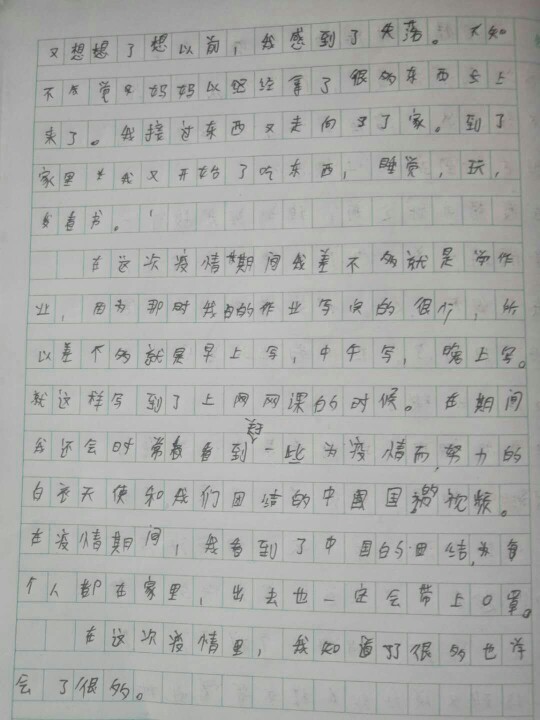 又想想了想以前，我感到了失落。不知
不觉又妈妈以经拿了很多东西去上
来了。我接过东西又走向了家。到了
家里我又开始了吃东西，睡觉，玩，
看书。
在这次疫情期间我差不多就是写作
业，因为那时我的作业写的很少，所
以差不多就是早上写，中午写，晚上写。
就这样写到了上网网课的时候。在期间
我还会时常看到一些关于为疫情而努力的
白衣天使和我们团结的中国国的视频。
在疫情期间，我看到了中国的团结，为每
个人都在家里，出去也一定会带上口罩。
在这次疫情里，我知道了很多也学
会了很多。